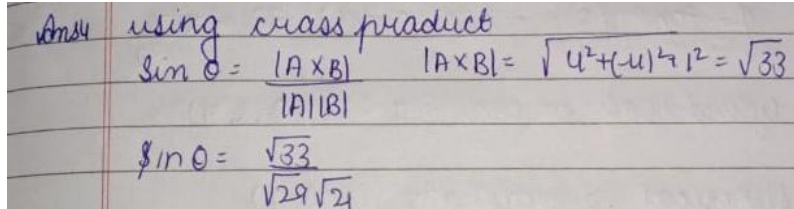 Ans4 using crass product
Sin θ = |A×B| / |A||B| |A×B| = √4²+(-4)²+1² = √33
Sin θ = √33 / √29 √21